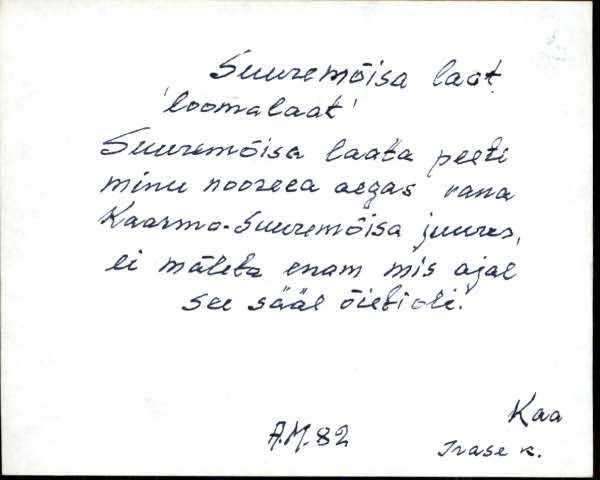 Suuremõisa laat
'loomalaat'
Suuremõisa laata peeti
minu noorema aegas vana
Kaarma-Suuremõisa juures,
ei mäleta enam mis ajal
see sääl õieti oli.
Kaa
A.M. 82
Irase k.